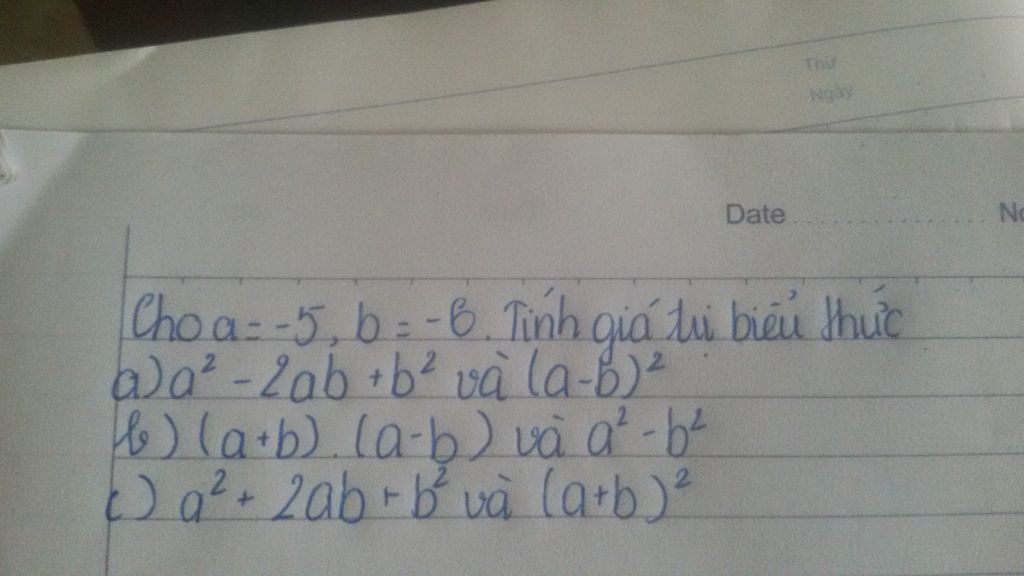 Thứ
Ngày
Date No
Cho a = -5, b = -6. Tính giá trị biểu thức
a) a² - 2ab + b² và (a-b)²
b) (a+b). (a-b) và a² - b²
c) a² + 2ab + b² và (a+b)²